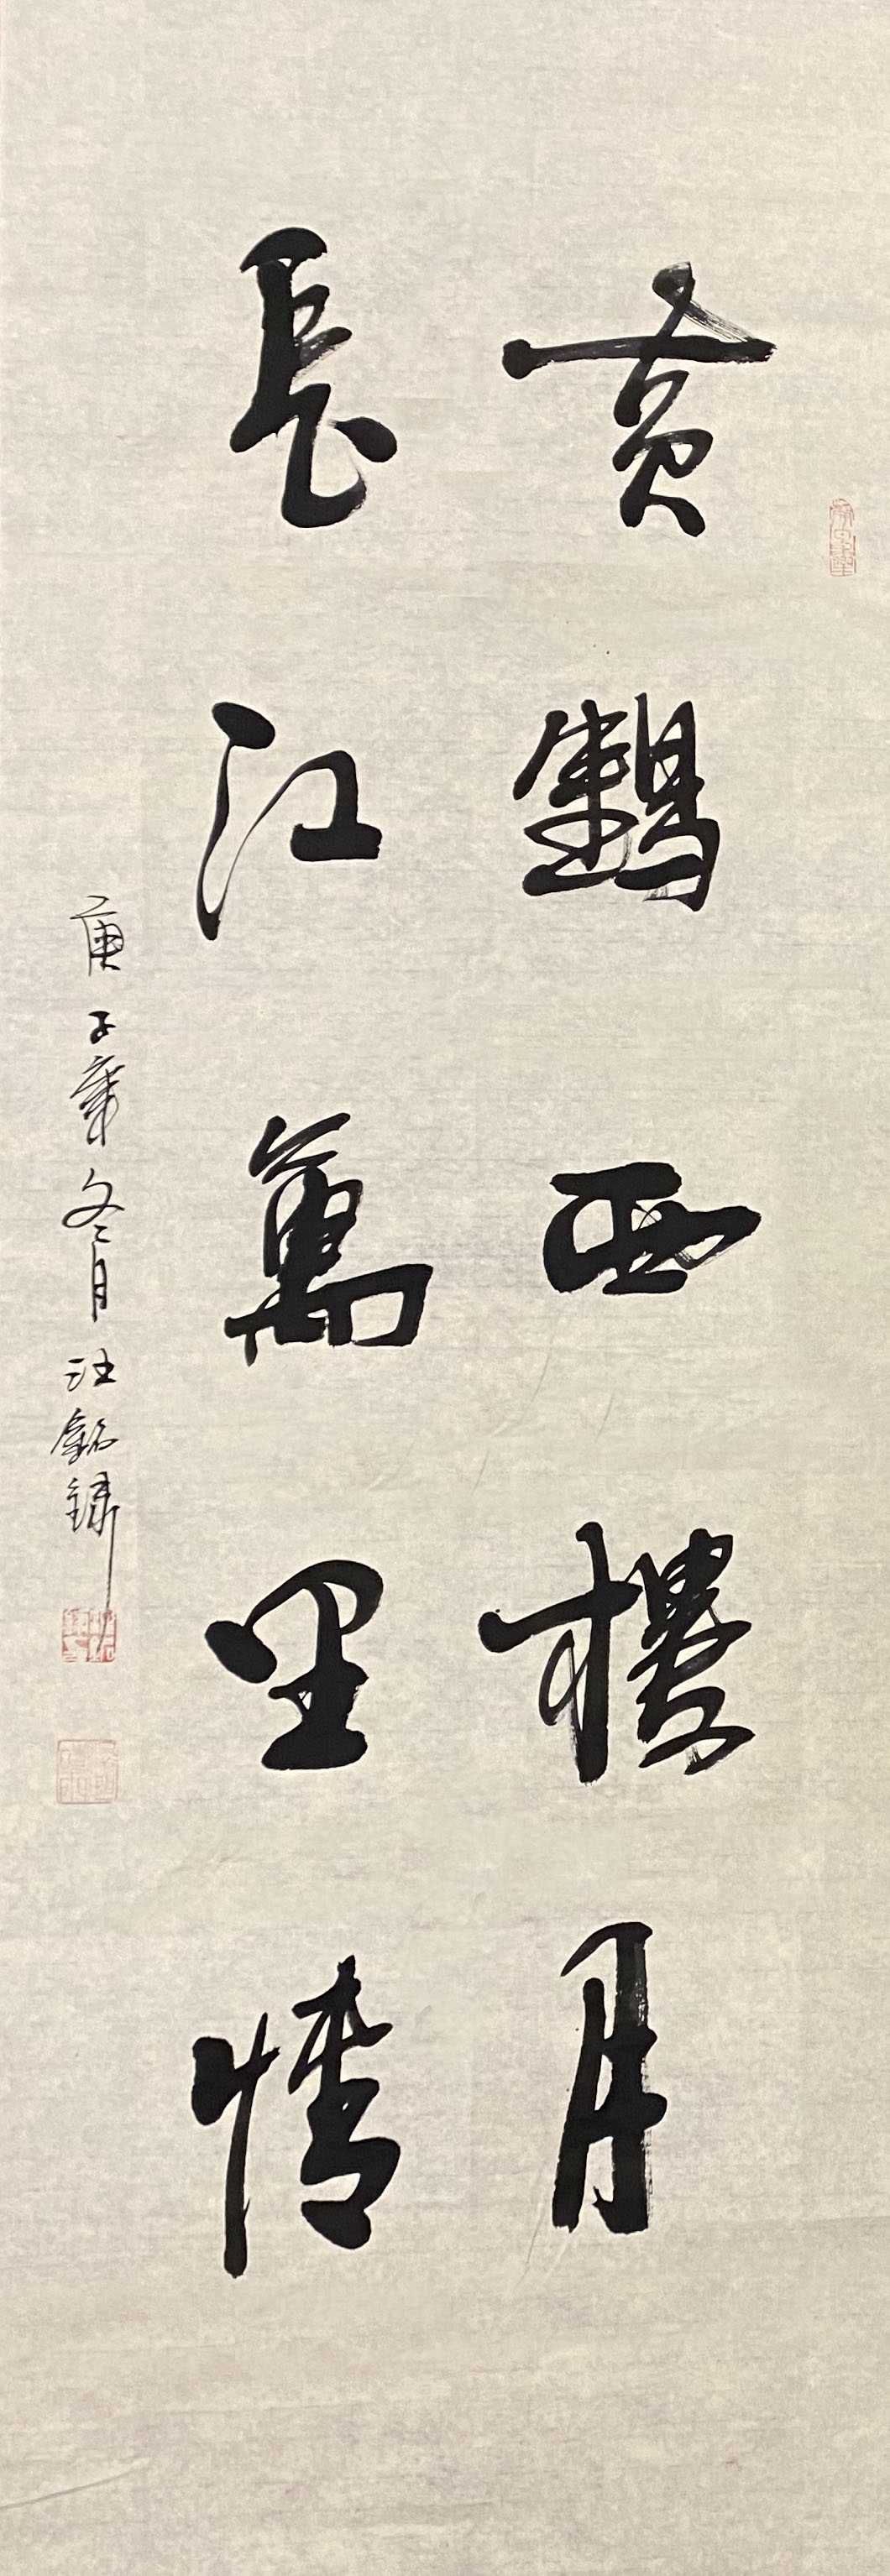 黄鶴西樓月
長江萬里情
庚子年冬月汪銘鏽